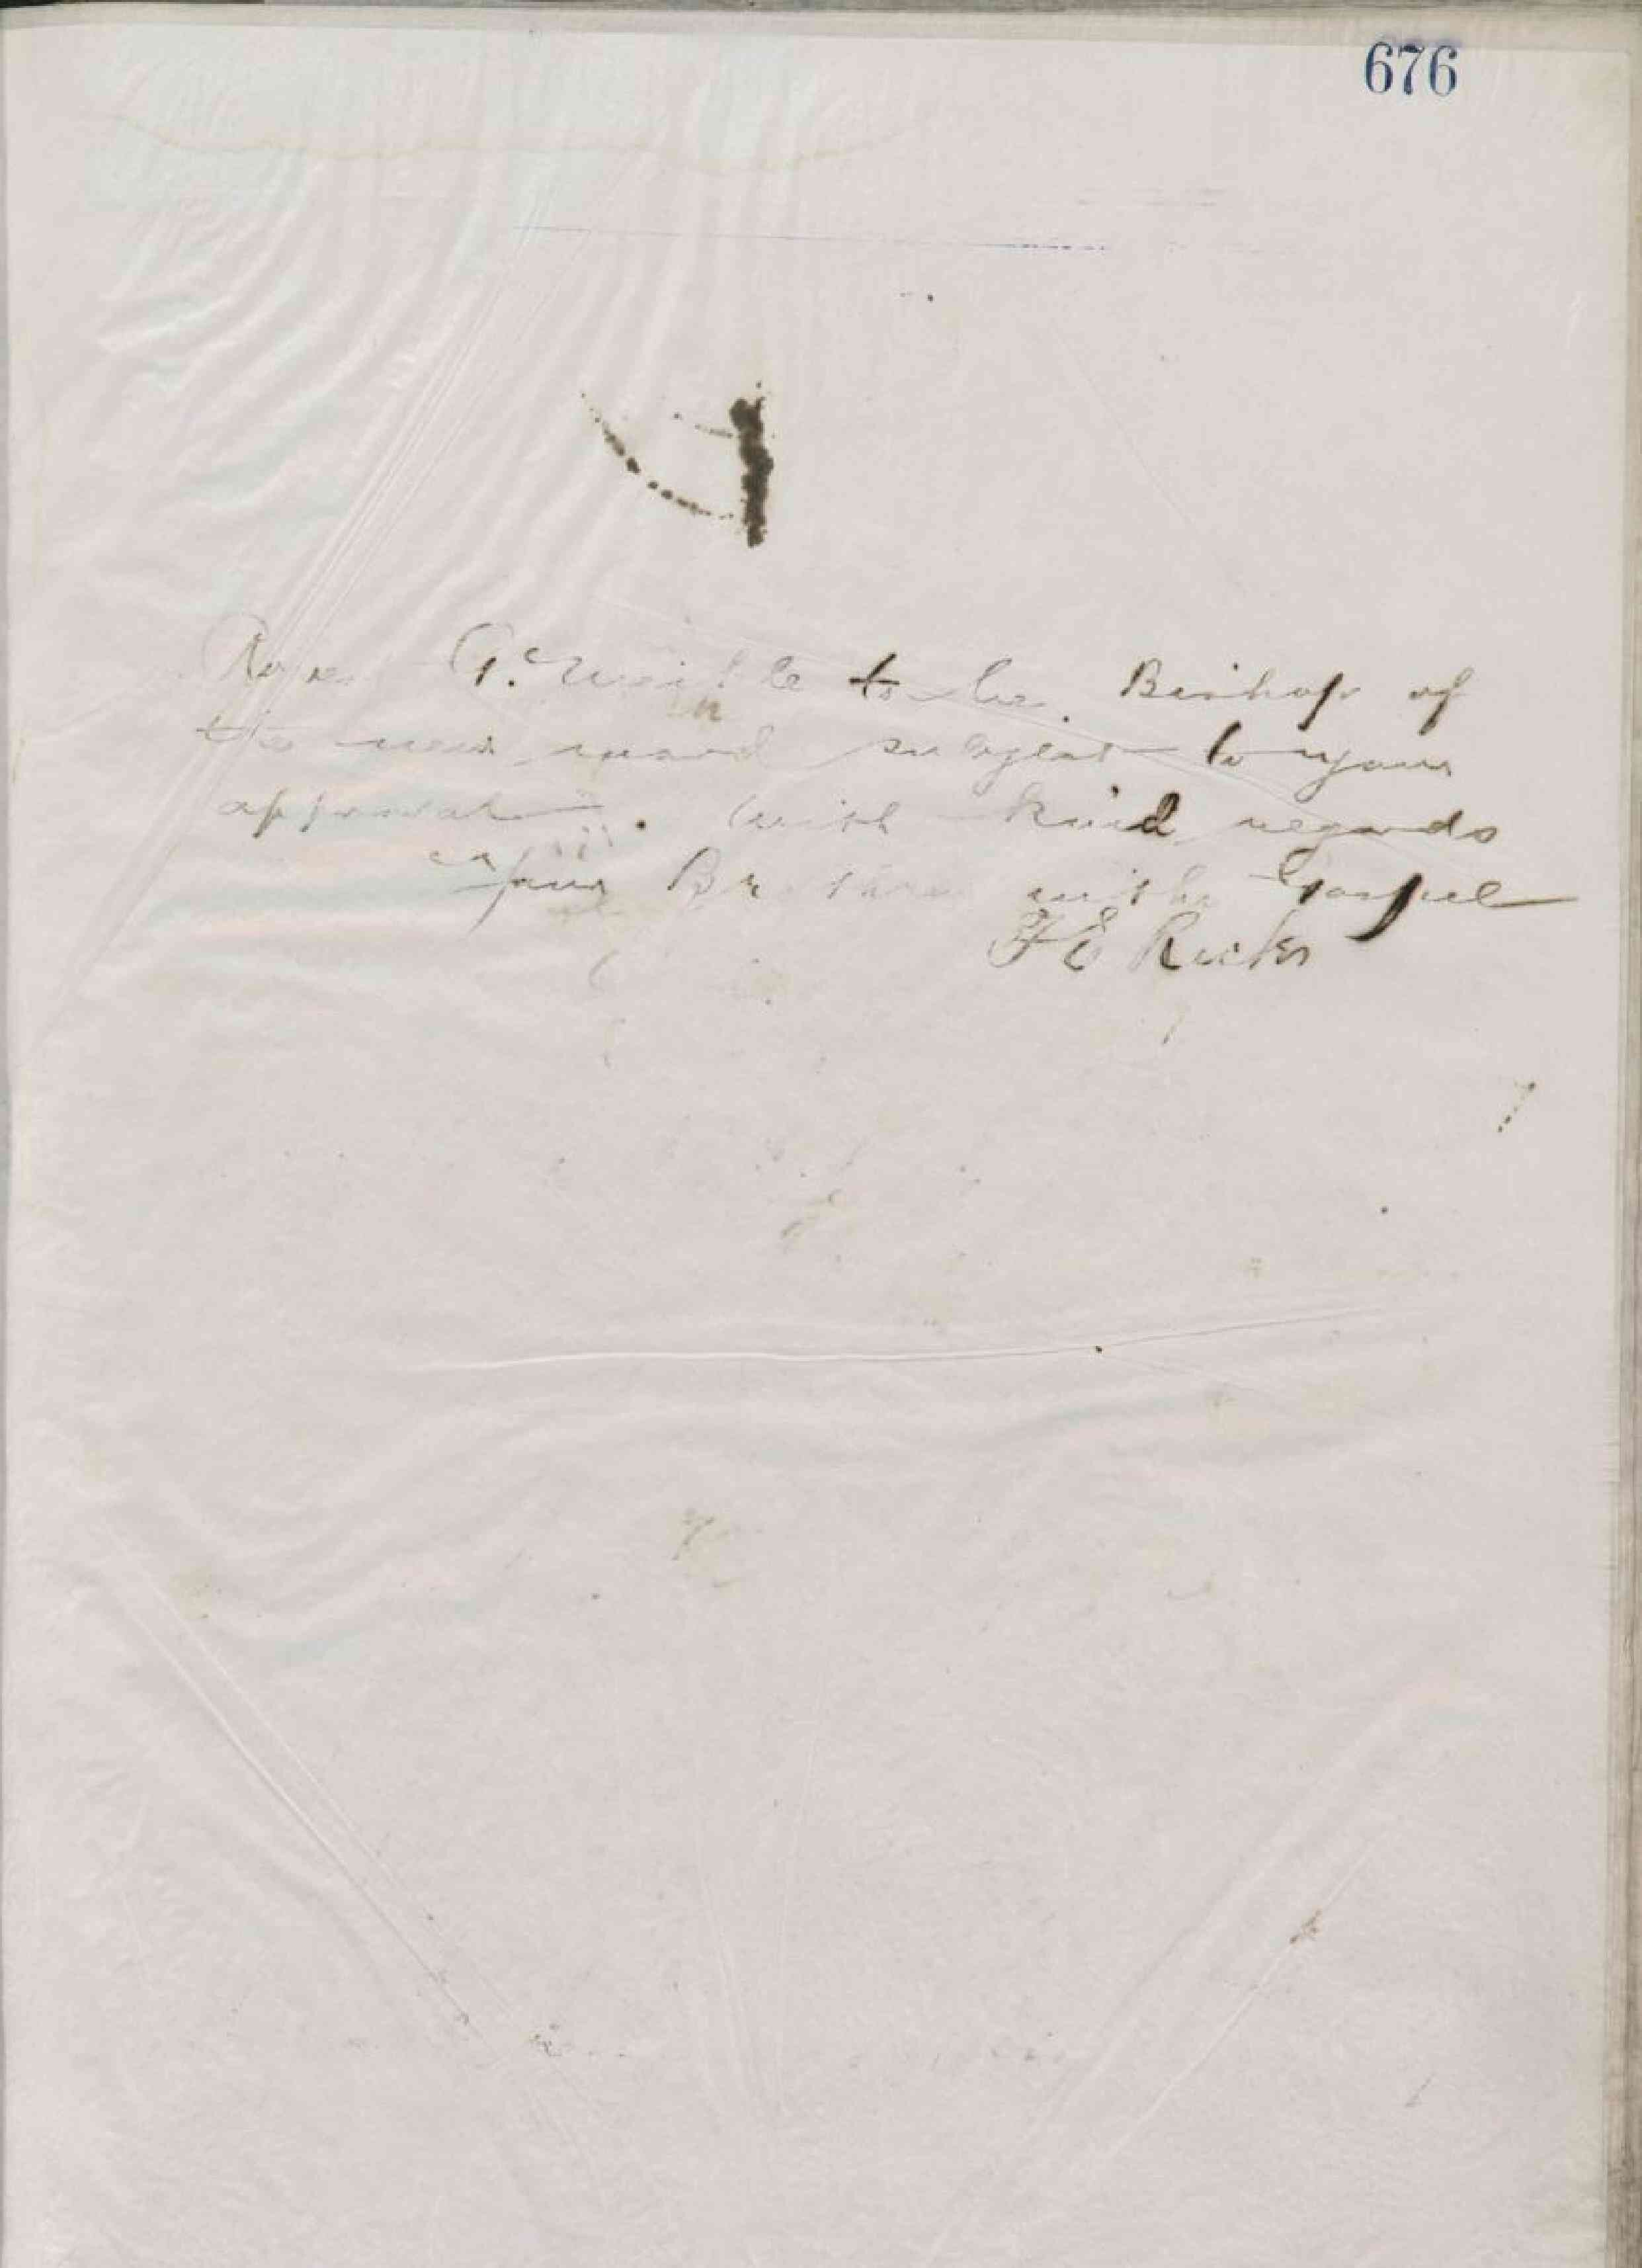 676
to be Bishop of
the new ward subject to your
approval. with kind regards
your Brother in the Gospel
T E Ricks